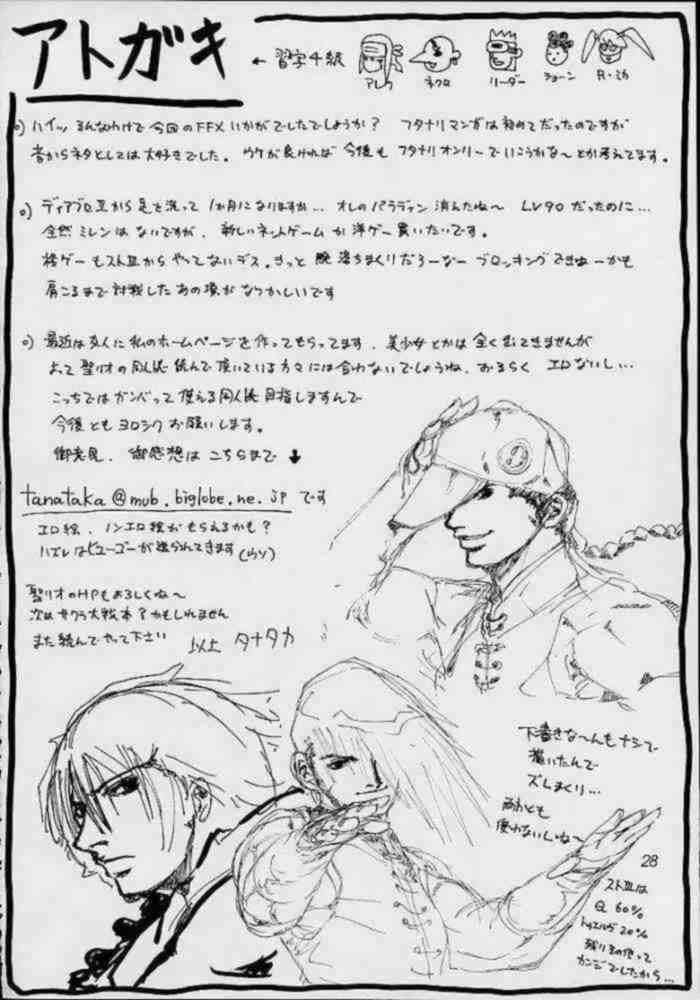 アトガキ
← 習字4級
アレク
ネクロ
リーダー
ショーン
R・ミカ
○) ハイッ そんなわけで今回のFFXいかがでしたでしょうか? フタナリマンガは初めてだったのですが
昔からネタとしては大好きでした。ウケが良ければ今後もフタナリオンリーでいこうかな〜とか考えてます。
○) ディアブロⅡから足を洗って1か月になりますが… オレのパラディン消えたね〜 LV90だったのに…
全然ミレンはないですが、新しいネットゲームか洋ゲー買いたいです。
格ゲーもストⅢからやってないデス。きっと腕落ちまくりだろーなー ブロッキングできねーかも
肩こるまで対戦したあの頃がなつかしいです
○) 最近は友人に私のホームページを作ってもらってます、美少女とかは全く出てきませんが
よって聖リオの同人誌読んで頂いている方々には合わないでしょうね、おそらく エロないし…
こっちではガンバって使える同人誌目指しますんで
今後ともヨロシクお願いします。
御意見、御感想はこちらまで ↓
tanataka@mub.biglobe.ne.jp です
エロ絵、ノンエロ絵がもらえるかも?
ハズレはヒューゴーが送られてきます(ウソ)
聖リオのHPもよろしくね〜
次はサクラ大戦本?かもしれません
また読んでやって下さい
以上 タナタカ
下書きな〜んもナシで
描いたんで
ズレまくり…
両方とも
使わないしね〜
28
ストⅢは
Q 60%
トゥエルヴ20%
残りその他って
カンジでしたから…